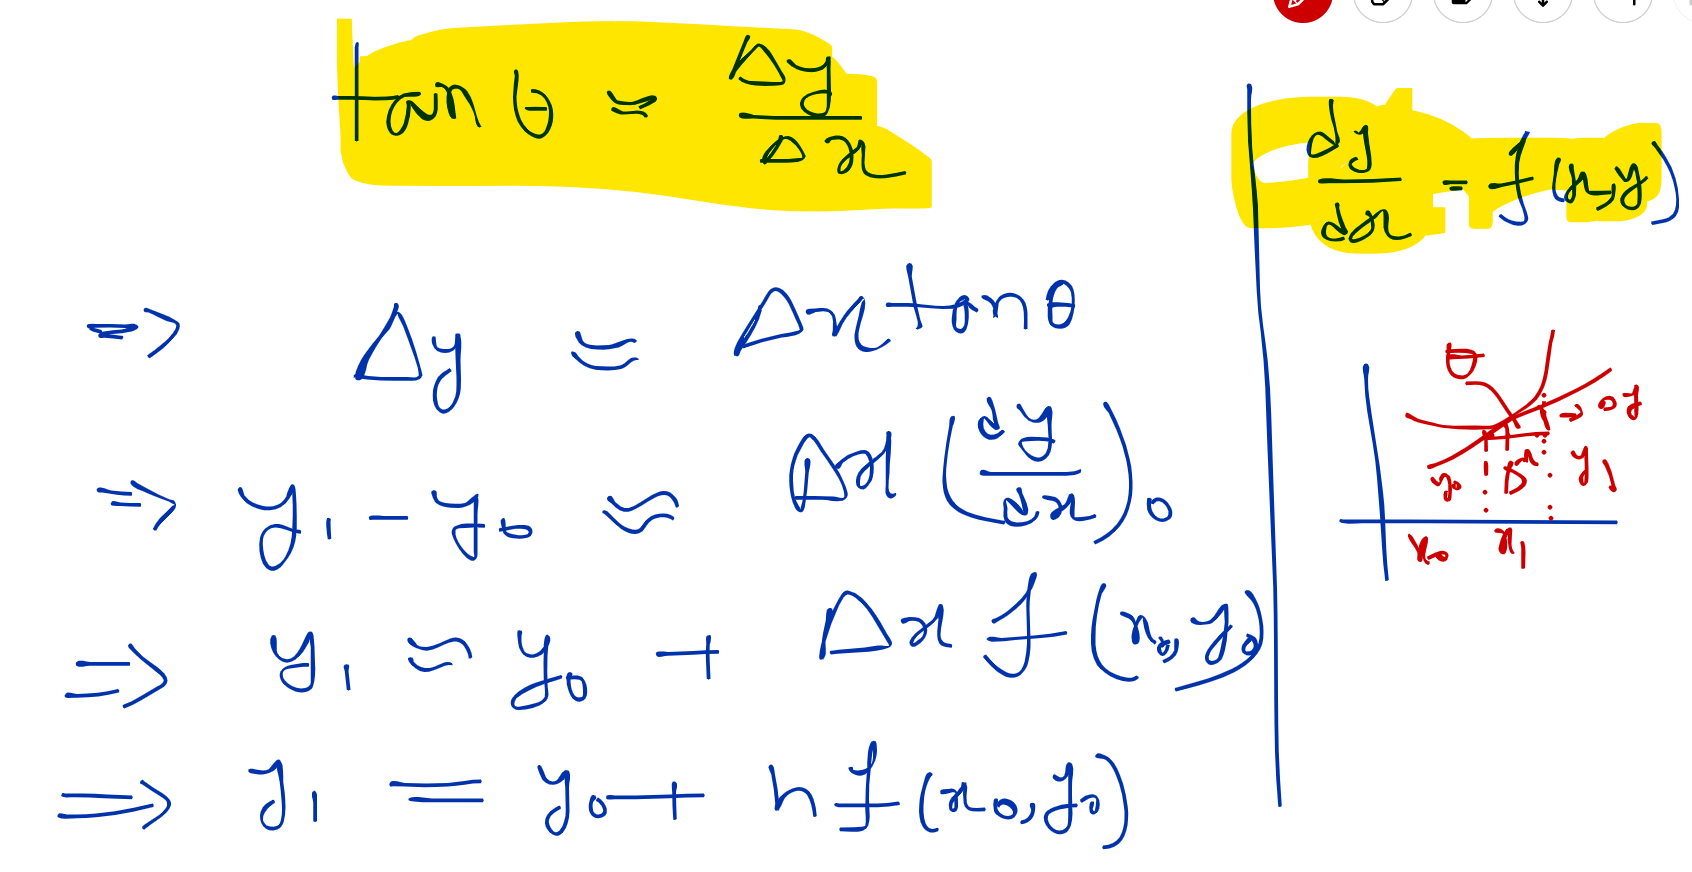 tan θ ≈ Δy/Δx
dy/dx = f(x,y)
⇒ Δy ≈ Δx tan θ
⇒ y₁ - y₀ ≈ Δx (dy/dx)₀
⇒ y₁ ≈ y₀ + Δx f(x₀, y₀)
⇒ y₁ = y₀ + h f(x₀, y₀)
θ
→ Δy
y₀ Δx y₁
x₀ x₁